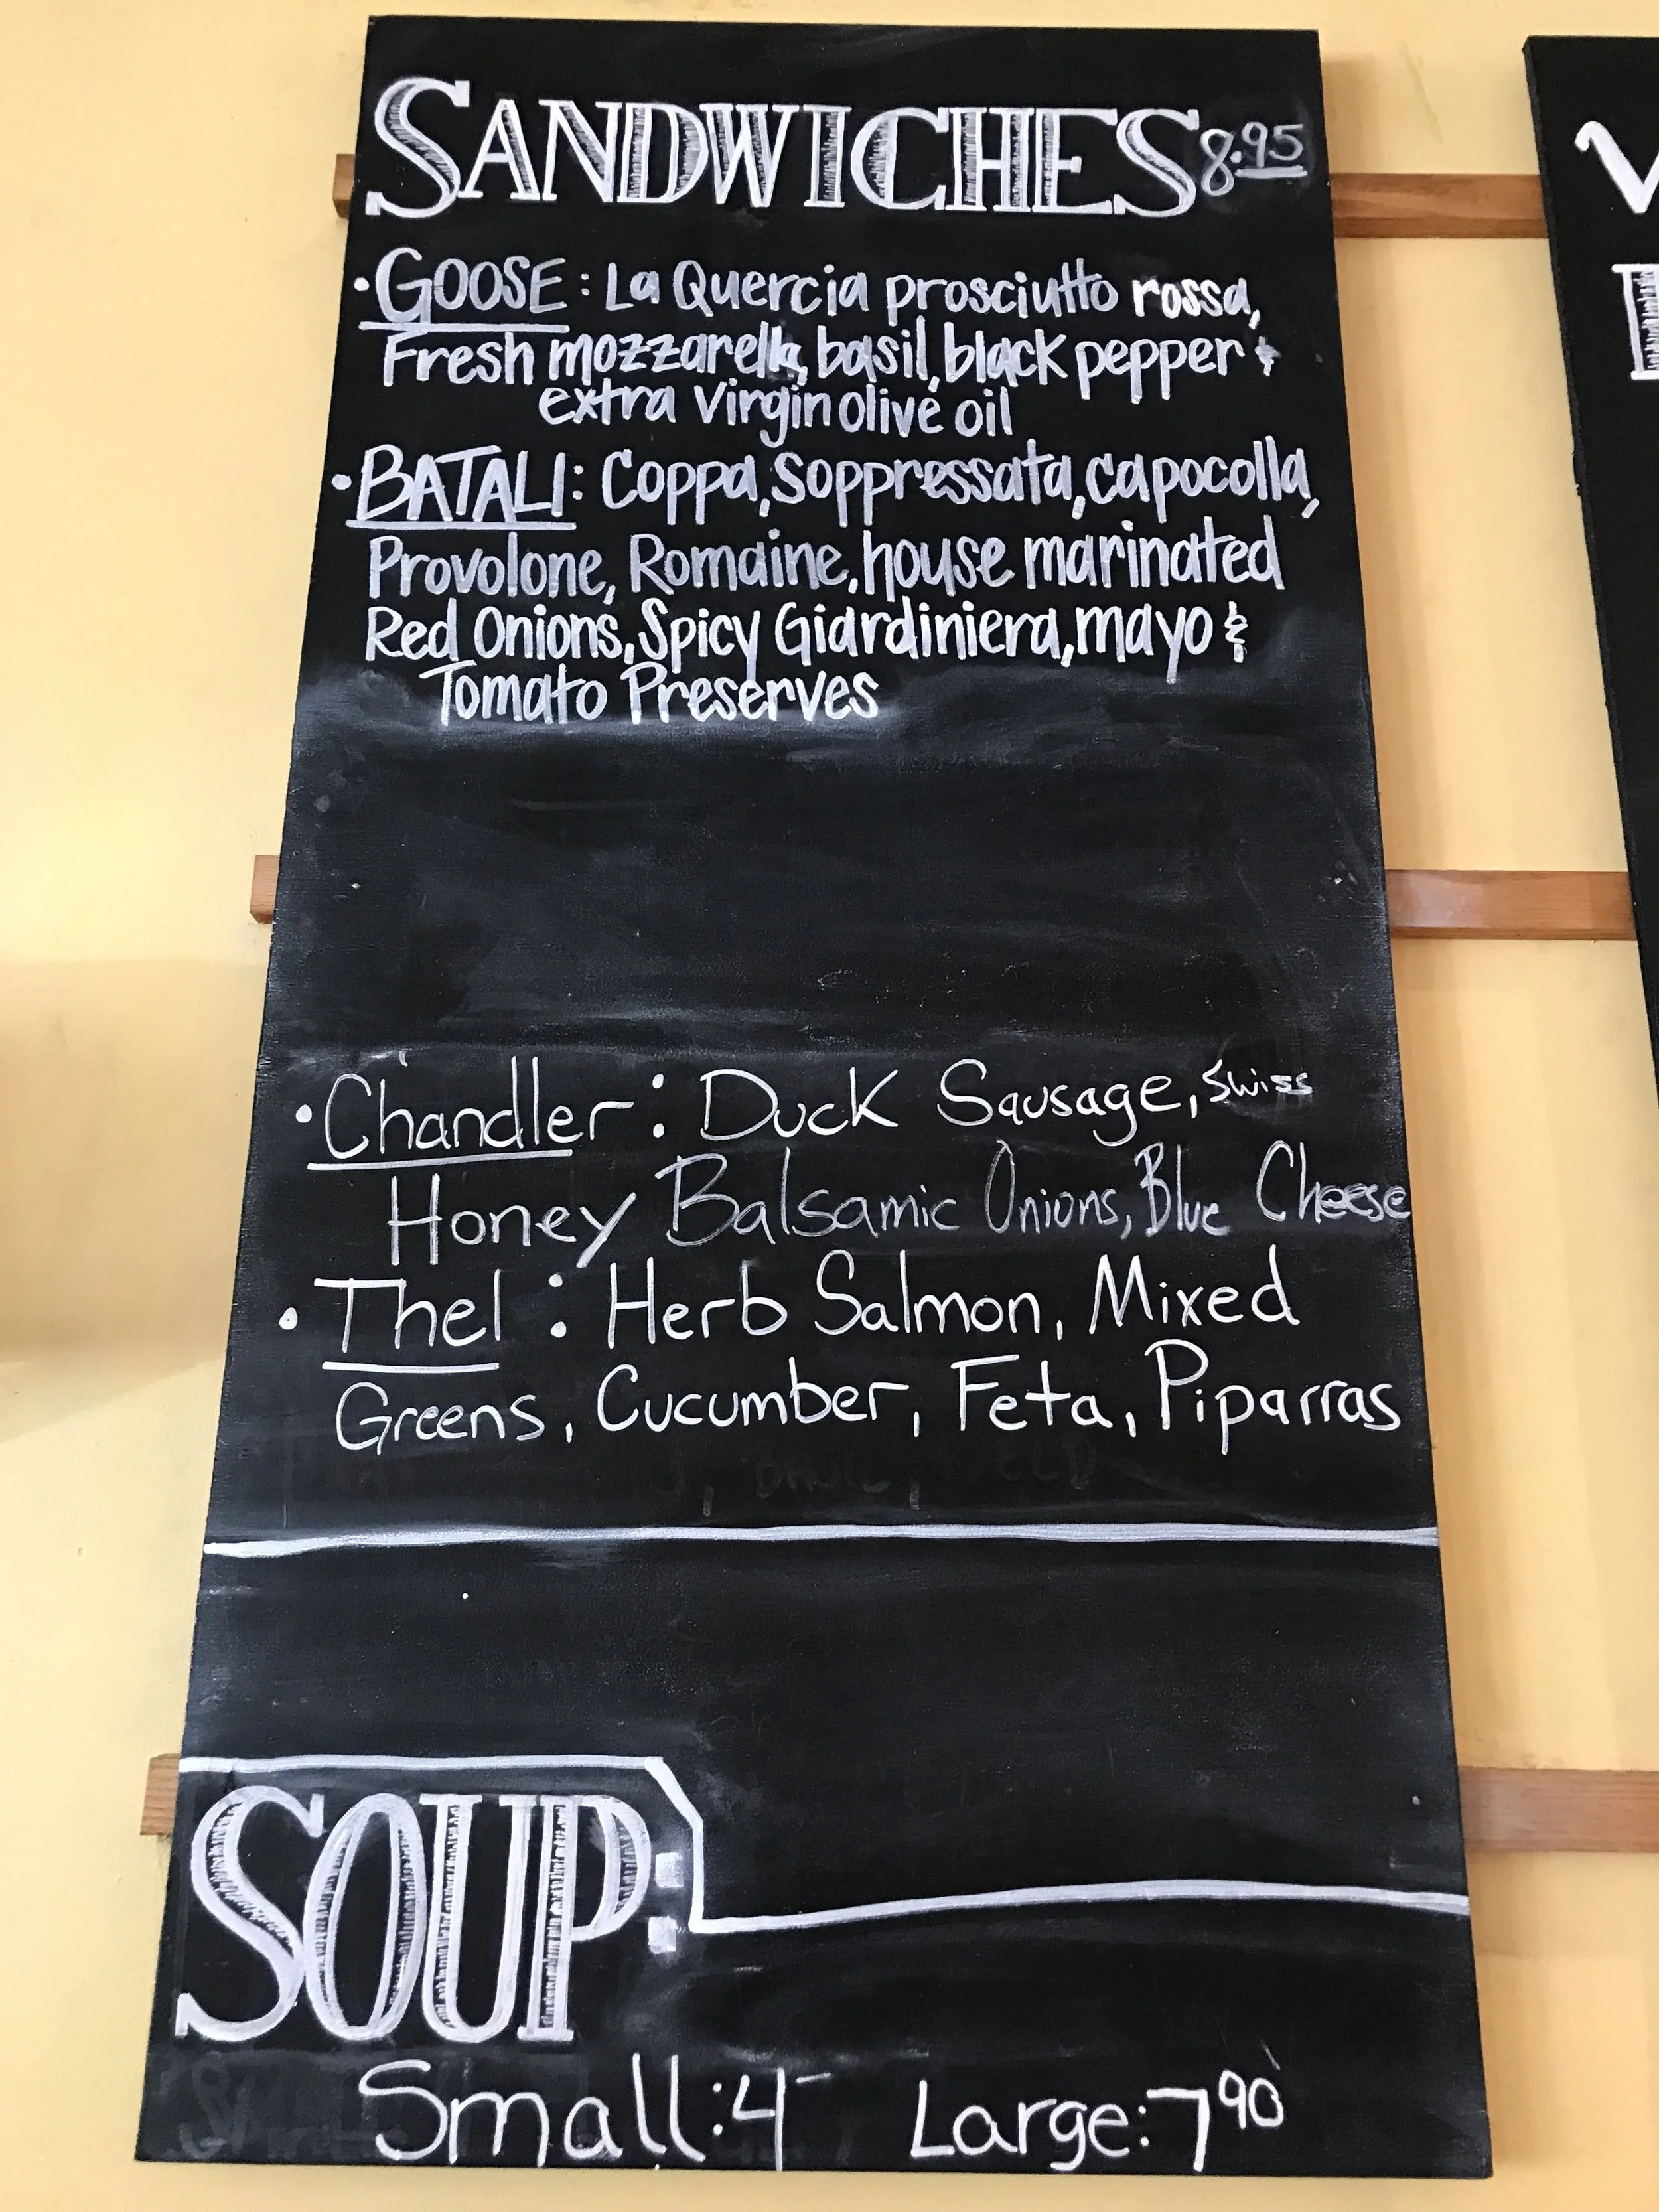 SANDWICHES 8.95
• GOOSE: La Quercia prosciutto rossa,
Fresh mozzarella, basil, black pepper &
extra virgin olive oil
• BATALI: Coppa, Soppressata, capocolla,
Provolone, Romaine, house marinated
Red Onions, Spicy Giardiniera, mayo &
Tomato Preserves
• Chandler: Duck Sausage, Swiss
Honey Balsamic Onions, Blue Cheese
• Thel: Herb Salmon, Mixed
Greens, Cucumber, Feta, Piparras
SOUP:
Small: 4- Large: 7 90